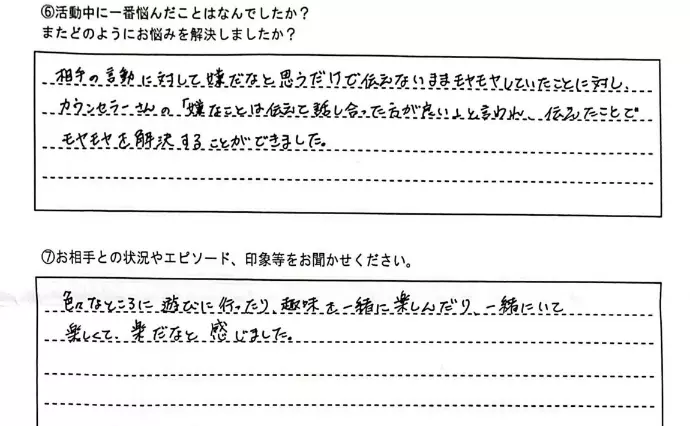 ⑥活動中に一番悩んだことはなんでしたか?
またどのようにお悩みを解決しましたか?
相手の言動に対して嫌だなと思うだけで伝えないままモヤモヤしていたことに対し、
カウンセラーさんの「嫌なことは伝えて話し合った方が良い」と言われ、伝えたことで
モヤモヤを解決することができました。
⑦お相手との状況やエピソード、印象等をお聞かせください。
色々なところに遊びに行ったり、趣味を一緒に楽しんだり、一緒にいて
楽しくて、楽だなと感じました。